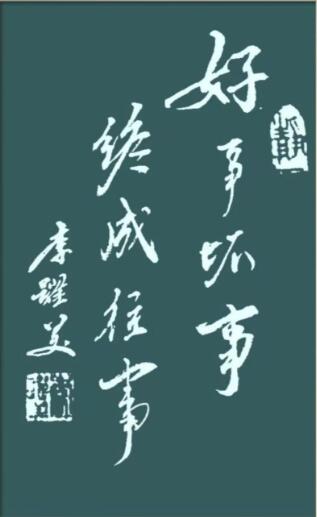 好事坏事
终成往事
李跃美